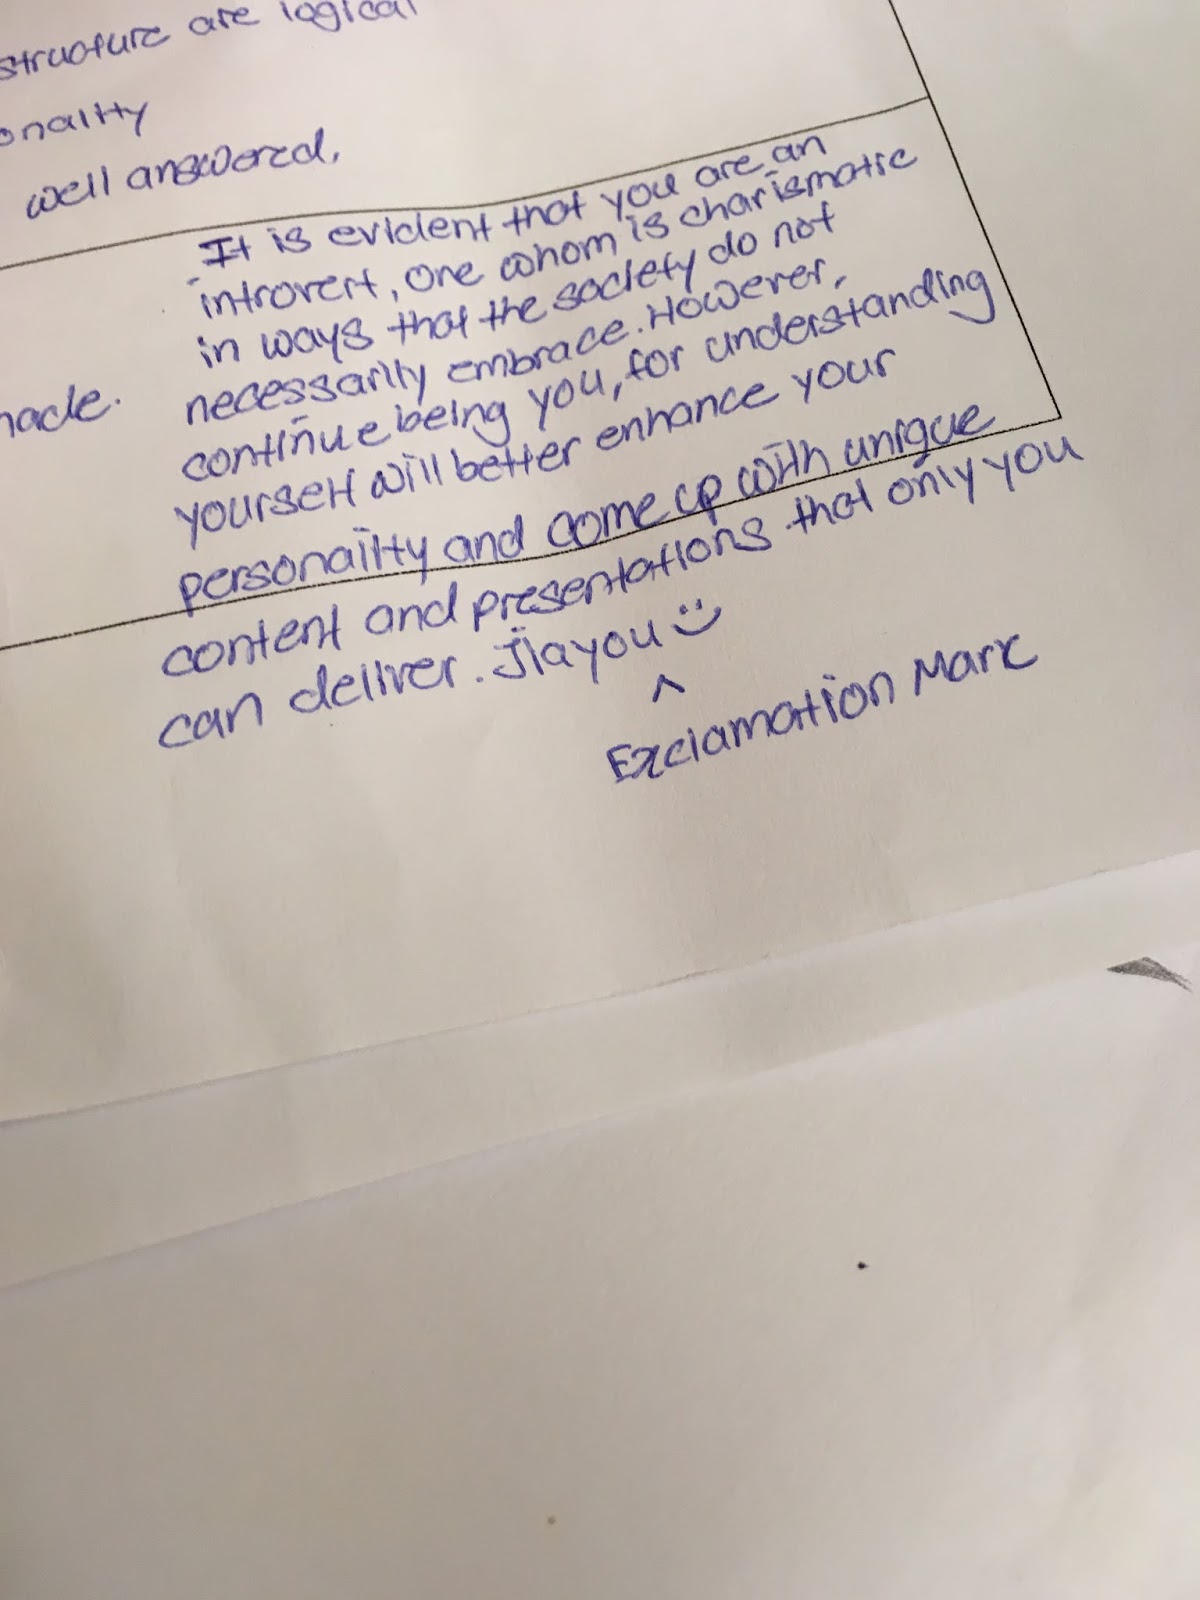 structure are logical
onality
well answered.
It is evident that you are an
introvert, one whom is charismatic
in ways that the society do not
necessarily embrace. However,
continue being you, for understanding
yourself will better enhance your
personality and come up with unique
content and presentations that only you
can deliver. Jiayou :)
^
Exclamation Mark
made.